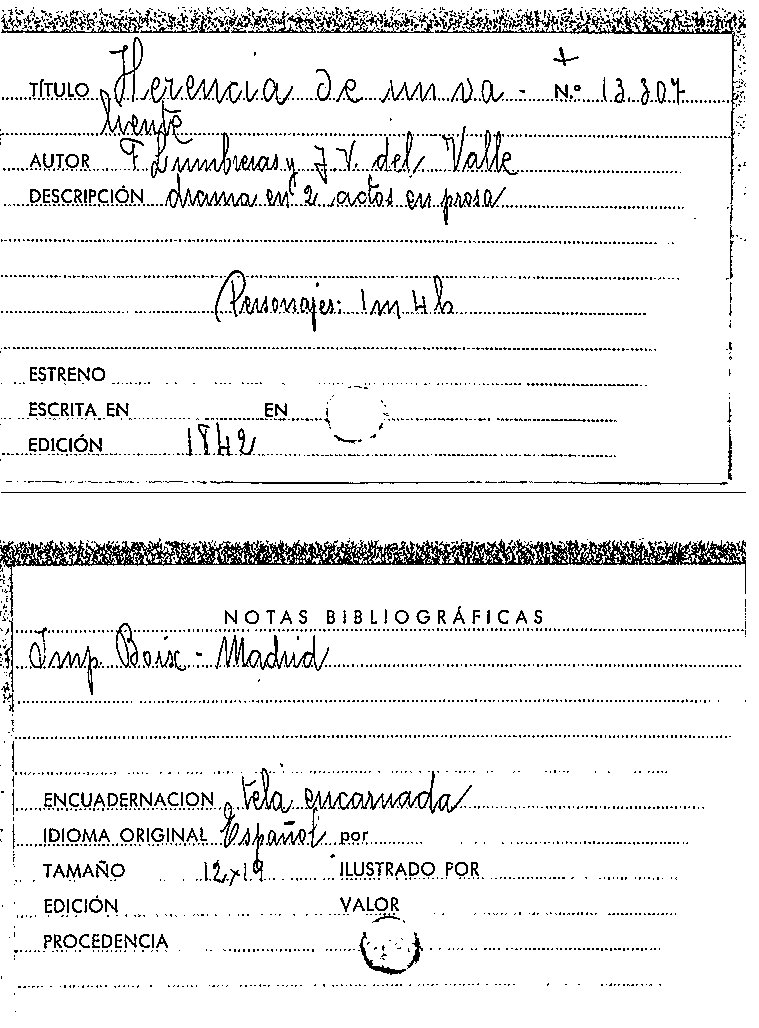 TÍTULO Herencia de un va- N.º 13.307
liente
AUTOR F Lumbreras y J. V. del Valle
DESCRIPCIÓN drama en 2 actos en prosa
Personajes: 1m 4h
ESTRENO
ESCRITA EN EN
EDICIÓN 1842
NOTAS BIBLIOGRÁFICAS
Imp Boix - Madrid
ENCUADERNACION tela encarnada
IDIOMA ORIGINAL Español por
TAMAÑO 12x19 ILUSTRADO POR
EDICIÓN VALOR
PROCEDENCIA